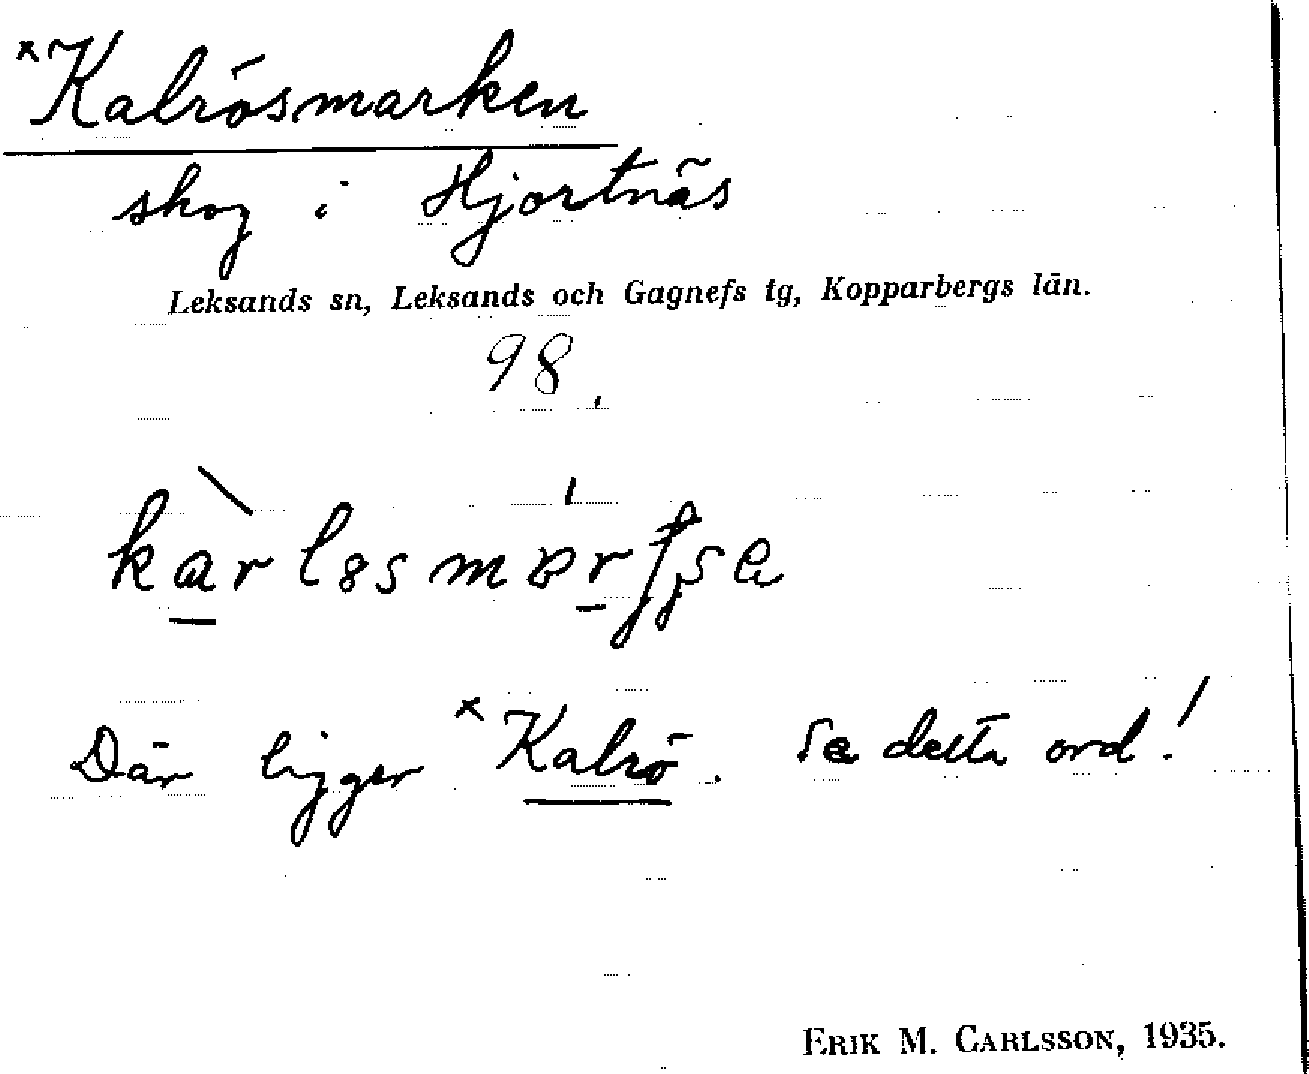 *Kalrösmarken
skog i Hjortnäs
Leksands sn, Leksands och Gagnefs tg, Kopparbergs län.
98.
Där ligger *Kalrö. Se detta ord!
ERIK M. CARLSSON, 1935.